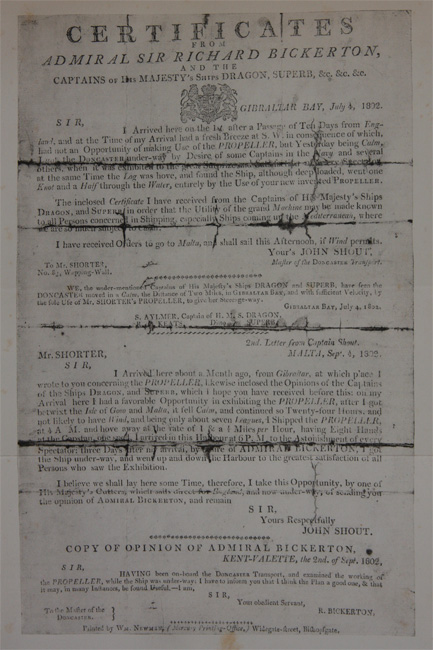 CERTIFICATES
FROM
ADMIRAL SIR RICHARD BICKERTON,
AND THE
CAPTAINS OF HIS MAJESTY's SHIPS DRAGON, SUPERB, &c. &c. &c.
GIBRALTAR BAY, July 4, 1802.
SIR,
I Arrived here on the 1st after a Passage of Ten Days from Eng-
land, and at the Time of my Arrival had a fresh Breeze at S. W. in consequence of which,
had not an Opportunity of making Use of the PROPELLER, but Yesterday being Calm,
the DONCASTER under-way by Desire of some Captains in the Navy and several
others, when it was
at the same Time the Log was hove, and found the Ship, although deep loaded, went one
Knot and a Half through the Water, entirely by the Use of your new invented PROPELLER.
The inclosed Certificate I have received from the Captains of His Majesty's Ships
DRAGON, and SUPERB, in order that the Utility of the grand Machine may be made known
to all Persons concerned in Shipping, especially Ships coming up the Mediterranean, where
we are so much subject to
I have received Orders to go to Malta, and shall sail this Afternoon, if Wind permits.
Your's JOHN SHOUT,
To Mr. SHORTER,
Master of the DONCASTER Transport.
No. 87, Wapping-Wall.
WE, the under-mentioned Captains of His Majesty's Ships DRAGON and SUPERB, have seen the
DONCASTER moved in a Calm, the Distance of Two Miles, in GIBRALTAR BAY, and with sufficient Velocity, by
the sole Use of Mr. SHORTER's PROPELLER, to give her Steerage-way.
GIBRALTAR BAY, July 4, 1802.
S. AYLMER, Captain of H. M. S. DRAGON.
SUPERB.
2nd. Letter from Captain Shout.
Mr. SHORTER,
MALTA, Sept. 4, 1802.
SIR,
I Arrived here about a Month ago, from Gibraltar, at which place I
wrote to you concerning the PROPELLER, likewise inclosed the Opinions of the Captains
of the Ships DRAGON, and SUPERB, which I hope you have received before this: on my
Arrival here I had a favorable Opportunity in exhibiting the PROPELLER, after I got
betwixt the Isle of Goza and Malta, it fell Calm, and continued so Twenty-four Hours, and
not likely to have Wind, and being only about seven Leagues, I Shipped the PROPELLER,
at 4 A. M. and hove away at the rate of 1 & a ½ Miles per Hour, having Light Hands
at the Capstan, one said, I arrived in this Harbour at 6 P. M. to the Astonishment of every
Spectator: three Days after my arrival, by Desire of ADMIRAL BICKERTON, I got
the Ship under-way, and went up and down the Harbour to the greatest satisfaction of all
Persons who saw the Exhibition.
I believe we shall lay here some Time, therefore, I take this Opportunity, by one of
His Majesty's Cutters, which sails direct for England, and now under-way, of sending you
the opinion of ADMIRAL BICKERTON, and remain
SIR,
Yours Respectfully
JOHN SHOUT.
COPY OF OPINION OF ADMIRAL BICKERTON,
KENT-VALETTE, the 2nd. of Sept. 1802.
SIR. HAVING been on-board the DONCASTER Transport, and examined the working of
the PROPELLER, while the Ship was under-way: I have to inform you that I think the Plan a good one, & that
it may, in many Instances, be found Useful.—I am,
SIR,
Your obedient Servant,
To the Master of the
R. BICKERTON.
DONCASTER.
Printed by Wm. NEWMAN, Printing-Office, Widegate-street, Bishopsgate.